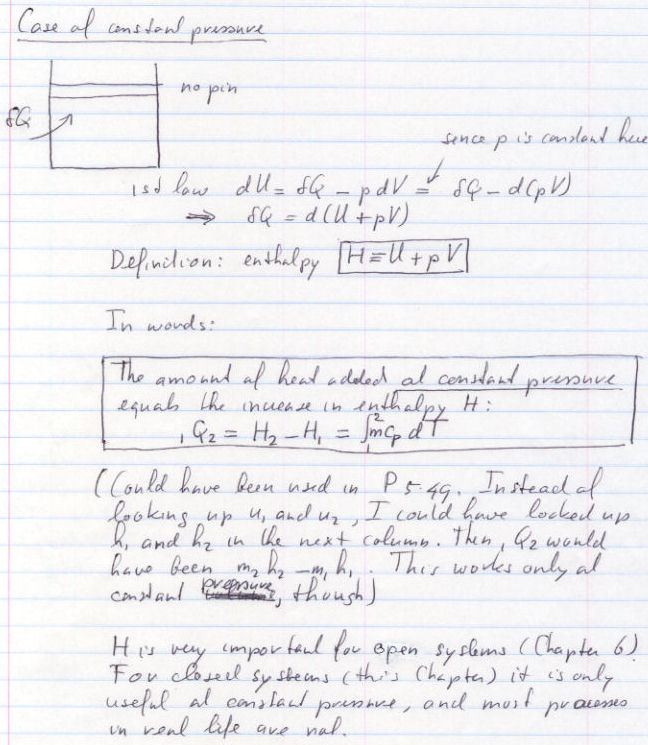 Case at constant pressure
no pin
δQ
since p is constant here
1st law dU = δQ - p dV = δQ - d(pV)
⇒ δQ = d(U + pV)
Definition: enthalpy H ≡ U + pV
In words:
The amount of heat added at constant pressure
equals the increase in enthalpy H:
₁Q₂ = H₂ - H₁ = ∫₁² m Cp dT
(Could have been used in P 5.49. Instead of
looking up u₁ and u₂, I could have looked up
h₁ and h₂ in the next column. Then ₁Q₂ would
have been m₂h₂ - m₁h₁. This works only at
constant pressure, though)
H is very important for open systems (Chapter 6)
For closed systems (this Chapter) it is only
useful at constant pressure, and most processes
in real life are not.